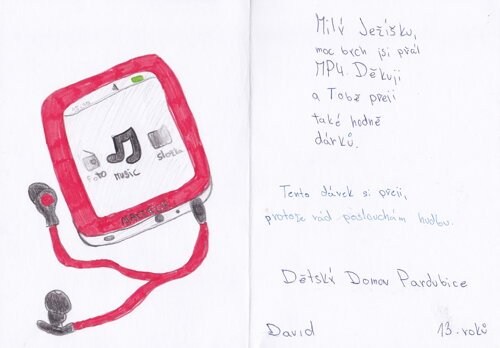 Foto music složka
Milý Ježíšku,
moc bych jsi přál
MP4. Děkuji
a Tobě přeji
také hodně
dárků.
Tento dárek si přeji,
protože rád poslouchám hudbu.
Dětský Domov Pardubice
David 13. roků